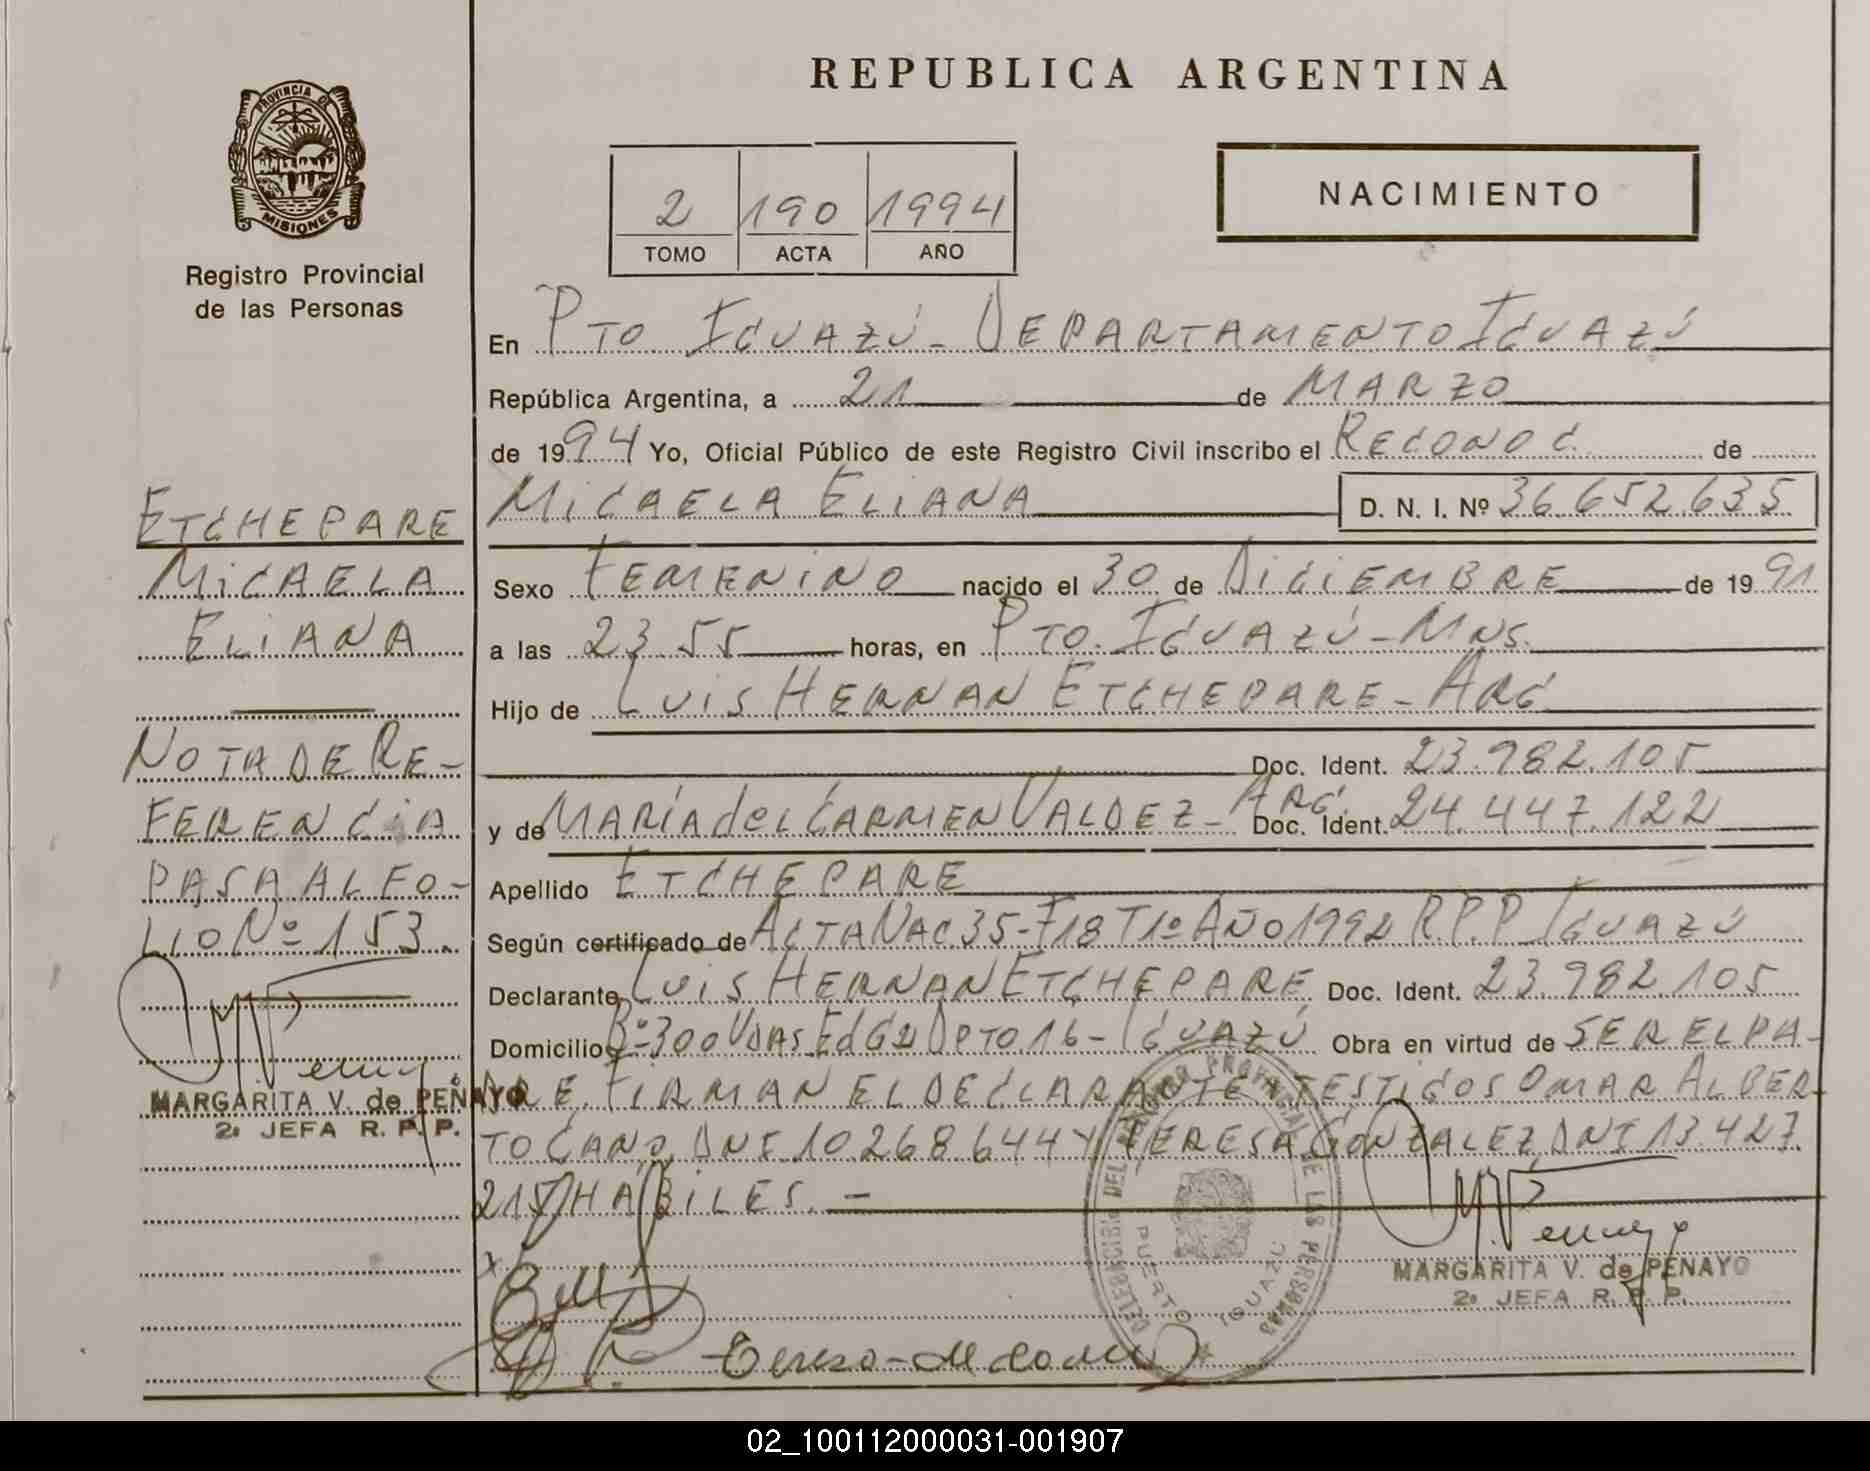 REPUBLICA ARGENTINA
PROVINCIA DE
MISIONES
Registro Provincial
de las Personas
NACIMIENTO
2 190 1994
TOMO ACTA AÑO
En PTO IGUAZÚ - DEPARTAMENTO IGUAZÚ
República Argentina, a 21 de MARZO
de 1994 Yo, Oficial Público de este Registro Civil inscribo el RECONOC. de
MICAELA ELIANA D. N. I. Nº 36.652.635
Sexo FEMENINO nacido el 30 de DICIEMBRE de 1991
a las 23.55 horas, en PTO. IGUAZÚ - MNS.
Hijo de LUIS HERNAN ETCHEPARE - ARG.
Doc. Ident. 23.982.105
y de MARÍA del CARMEN VALDEZ - ARG. Doc. Ident. 24.447.122
Apellido ETCHEPARE
Según certificado de ACTA NAC 35 - F18 T1º AÑO 1992 R.P.P IGUAZÚ
Declarante LUIS HERNAN ETCHEPARE Doc. Ident. 23.982.105
Domicilio Bº 300 VDAS Ed G2 DPTO 16 - IGUAZÚ Obra en virtud de SER EL PA-
DRE. FIRMAN EL DECLARANTE TESTIGOS OMAR ALBER-
TO CANO DNI 10.268.644 Y TERESA GONZALEZ DNI 13.427.
215 HABILES. -
ETCHEPARE
MICAELA
ELIANA
NOTA DE RE-
FERENCIA
PASA AL FO-
LIO Nº 153.
MARGARITA V. de PENAYO
2ª JEFA R. P. P.
DELEGACION DEL REGISTRO PROVINCIAL DE LAS PERSONAS
PUERTO IGUAZU
MARGARITA V. de PENAYO
2ª JEFA R. P. P.
02_100112000031-001907